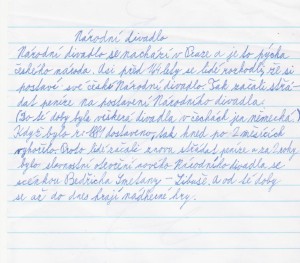 Národní divadlo
Národní divadlo se nachází v Praze a je to pýcha
českého národa. Asi před 14 lety se lidé rozhodli, že si
postaví své české Národní divadlo. Tak začali střá-
dat peníze na postavení Národního divadla.
(Do té doby byla veškerá divadla v čechách jen německá)
Když bylo r. dostaveno, tak hned po 2 měsících
vyhořelo. Proto lidé začali znova střádat peníze a za 2 roky
bylo slavnostní otevření nového Národního divadla se
Bedřicha Smetany - Libuše. A od té doby
se až do dnes hrají nádherné hry.